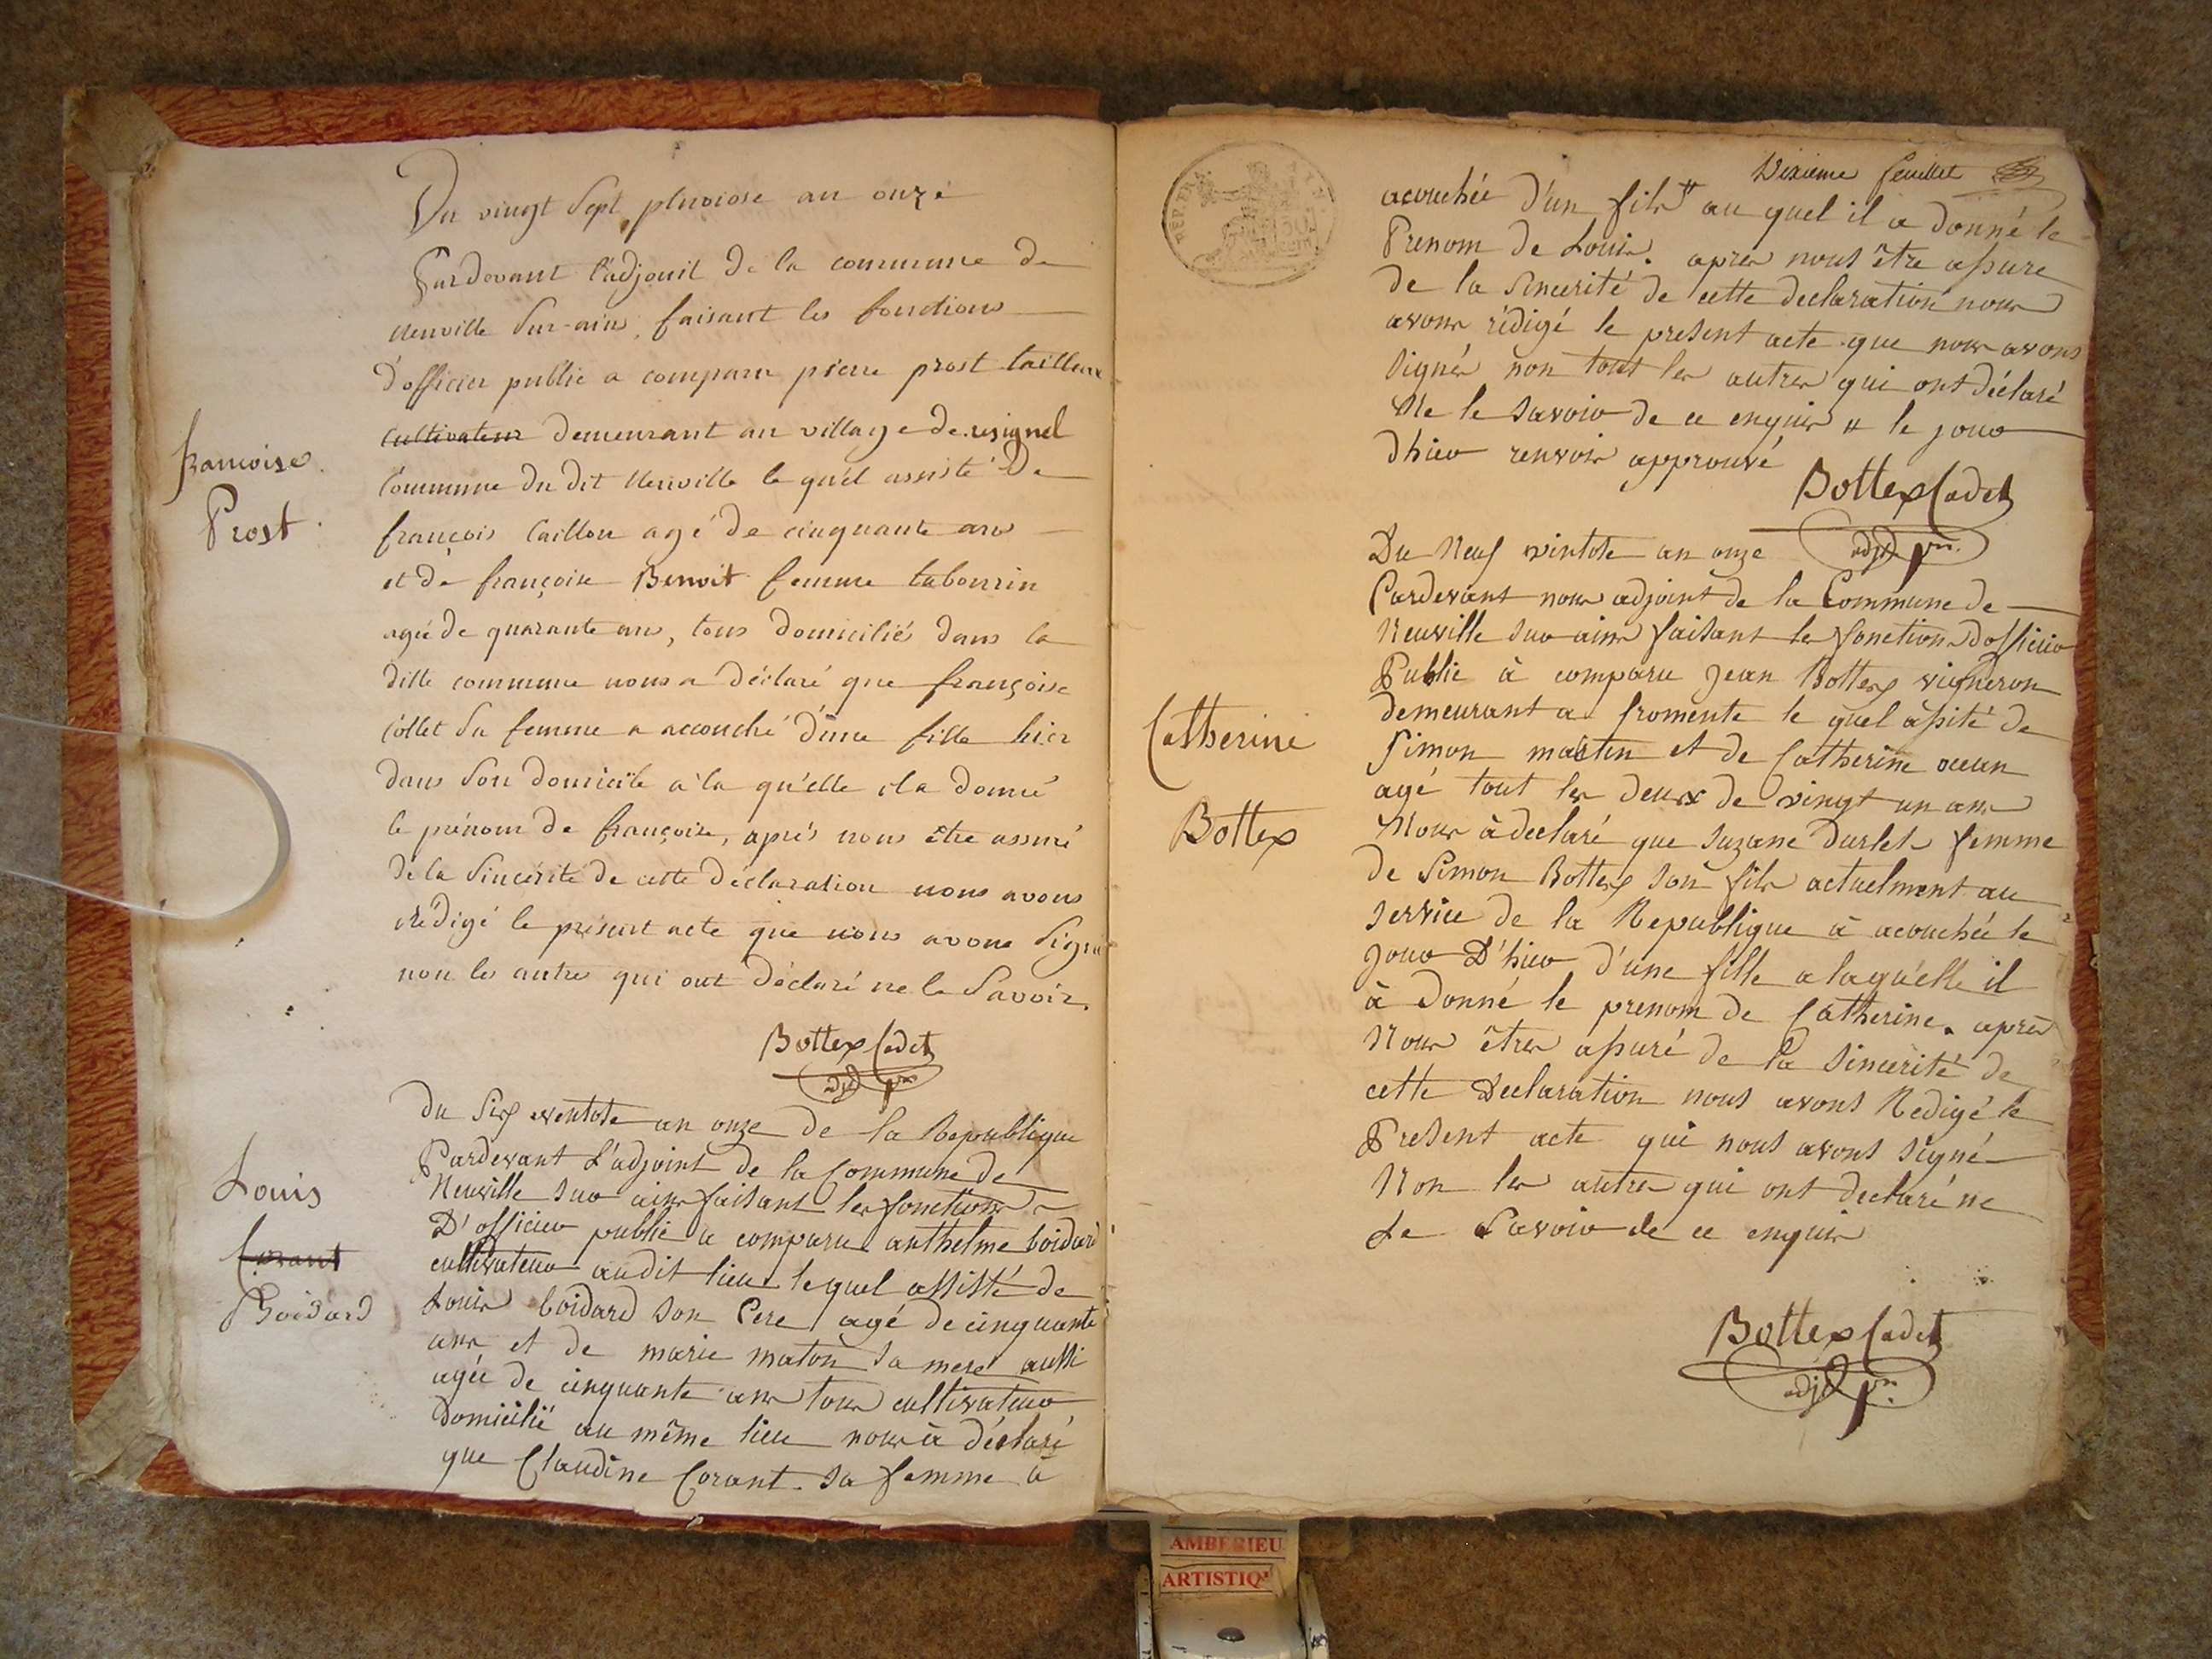 Du vingt Sept pluviose an onze
Pardevant l'adjouit de la commune de
Neuville Sur-ain, faisant les fonctions
d'officier public a comparu pierre prost tailleur
cultivateur demeurant au village de resignel
Commune du dit Neuville le qu'el assisté De
françois Caillon agé de cinquante ans
et de françoise Benoit femme tabourin
agée de quarante ans, tous domicilié dans la
ditte commune nous a déclaré que françoise
Collet Sa femme a accouché d'une fille hier
dans Son domicile a la qu'elle il a donné
le prénom de françoise, aprés nous être assuré
de la Sincérité de cette déclaration nous avons
rédigé le présent acte que nous avons Signé
non les autres qui ont déclaré ne le Savoir.
francoise
Prost
Bottex Cadet
adjt
du Six ventose an onze de la Republique
Pardevant L'adjoint de la Commune de
Neuville sur ain faisant les fonctions
D'officier public a comparu anthelme boidard
cultivateur audit lieu lequel assisté de
Louis boidard son Pere agé de cinquante
ans et de marie maton sa mere aussi
agée de cinquante ans tous cultivateur
domicilié au même lieu nous à déclaré
que Claudine Corant sa femme à
Louis
Corant
Boidard
Dixieme feuillet
REP. FRA
acouchée d'un fils # au quel il a donné le
Prenom de Louis. apres nous être assure
de la Sincerité de cette declaration nous
avons rédigé le present acte que nous avons
Signés non tout les autres qui ont déclaré
Ne le savoir de ce enquis # le jour
dhier renvois approuvé
Bottex Cadet
adjt
Du Neuf vintose an onze
Pardevant nous adjoint de la Commune de
Neuville sur ains faisant les fonctions dofficier
Public à comparu Jean Bottex vigneron
demeurant a fromente le quel assité de
Simon martin et de Catherine
agé tout les deux de vingt un ans
Nous à declaré que Suzane Durlet femme
de Simon Bottex son fils actuelment au
service de la Republique à acouchée le
jour D'hier d'une fille a laqu'elle il
à donné le prenom de Catherine. après
Nous êtres assuré de la sincerité de
cette Declaration nous avons Redigé le
Present acte qui nous avons signé
Non les autres qui ont declaré ne
Le Savoir de ce enquis
Catherine
Bottex
Bottex Cadet
adjt
AMBERIEU
ARTISTIQ'